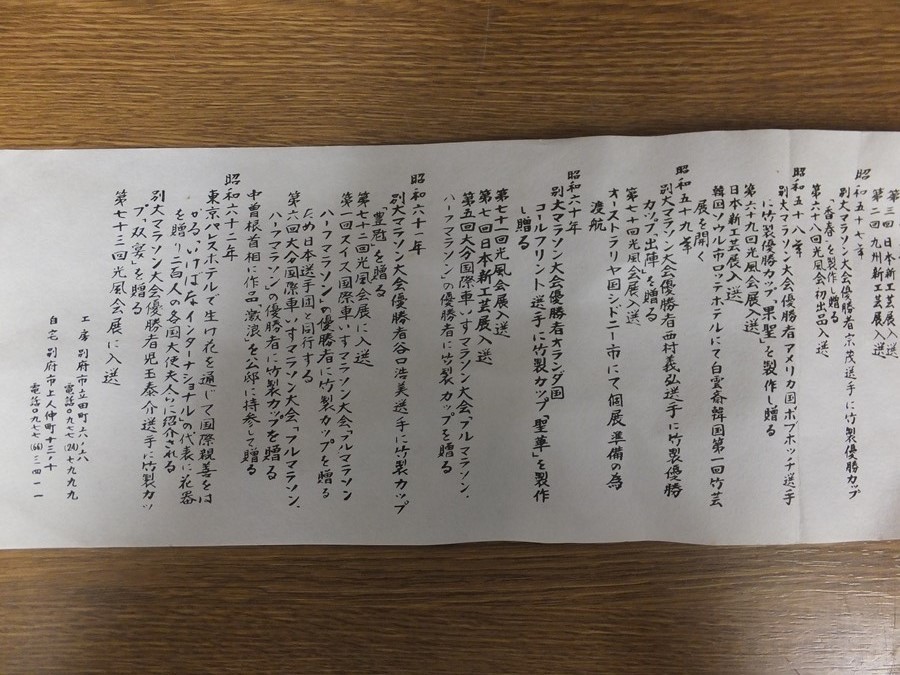 第三回日本新工芸展入選
第二回九州新工芸展入選
昭和五十七年
別大マラソン大会優勝者宗茂選手に竹製優勝カップ
「春春」を製作し贈る
第六十八回光風会初出品入選
昭和五十八年
別大マラソン大会優勝者アメリカ国ボブホッヂ選手
に竹製優勝カップ「果聖」を製作し贈る
第六十九回光風会展入選
日本新工芸展入選
韓国ソウル市ロッテホテルにて白雲斎韓国第一回竹芸
展を開く
昭和五十九年
別大マラソン大会優勝者西村義弘選手に竹製優勝
カップ「出陣」を贈る
第七十回光風会展入選
オーストラリヤ国シドニー市にて個展準備の為
渡航
昭和六十年
別大マラソン大会優勝者オランダ国
コールフリント選手に竹製カップ「聖華」を製作
し贈る
第七十一回光風会展入選
第七回日本新工芸展入選
第五回大分国際車いすマラソン大会「フルマラソン、
ハーフマラソン」の優勝者に竹製カップを贈る
昭和六十一年
別大マラソン大会優勝者谷口浩美選手に竹製カップ
「豊冠」を贈る
第七十二回光風会展に入選
第一回スイス国際車いすマラソン大会「フルマラソン
ハーフマラソン」の優勝者に竹製カップを贈る
ため日本選手団と同行する
第六回大分国際車いすマラソン大会「フルマラソン、
ハーフマラソン」の優勝者に竹製カップを贈る
中曽根首相に作品「激浪」を公邸に持参して贈る
昭和六十二年
東京パレスホテルで生け花を通じて国際親善をは
かる、いけばなインターナショナルの代表に花器
を贈り二百人の各国大使夫人に紹介される
別大マラソン大会優勝者児玉泰介選手に竹製カッ
プ「双宴」を贈る
第七十三回光風会展に入選
工房 別府市立田町六ノ六
電話〇九七七(24)七九九九
自宅 別府市上人仲町十三ノ十
電話〇九七七(66)三二四一一